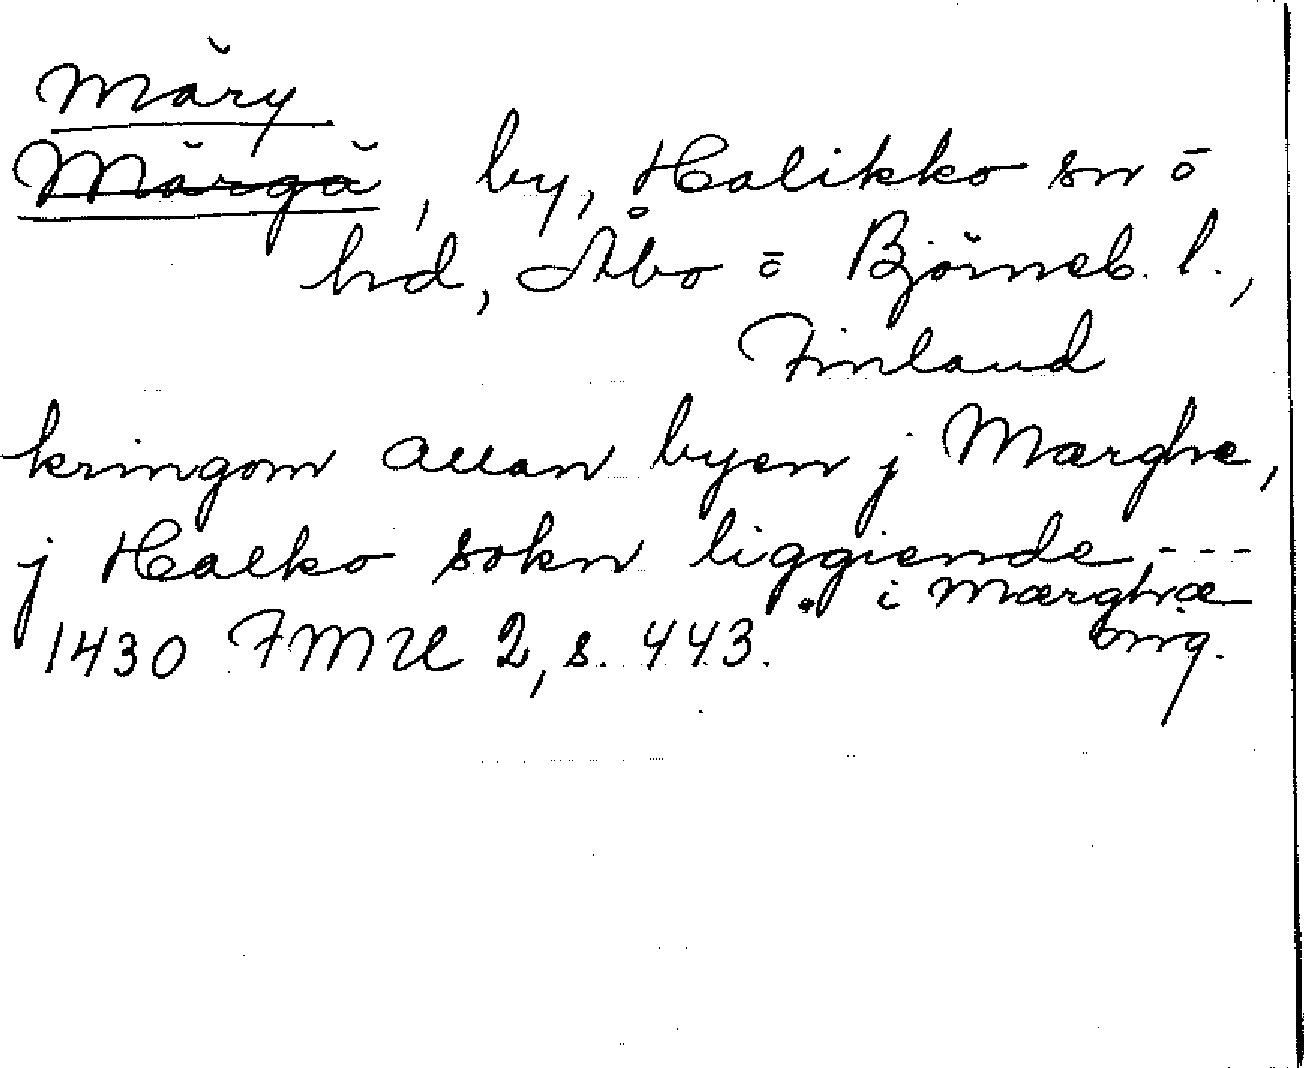 Märy
Märgä, by, Halikko sn ō
hd, Åbo ō Björneb. l.,
Finland
kringom allan byen j Mærghe,
j Halko sokn liggiende, ---
i Mærghæ
1430 FMU 2, s. 443.